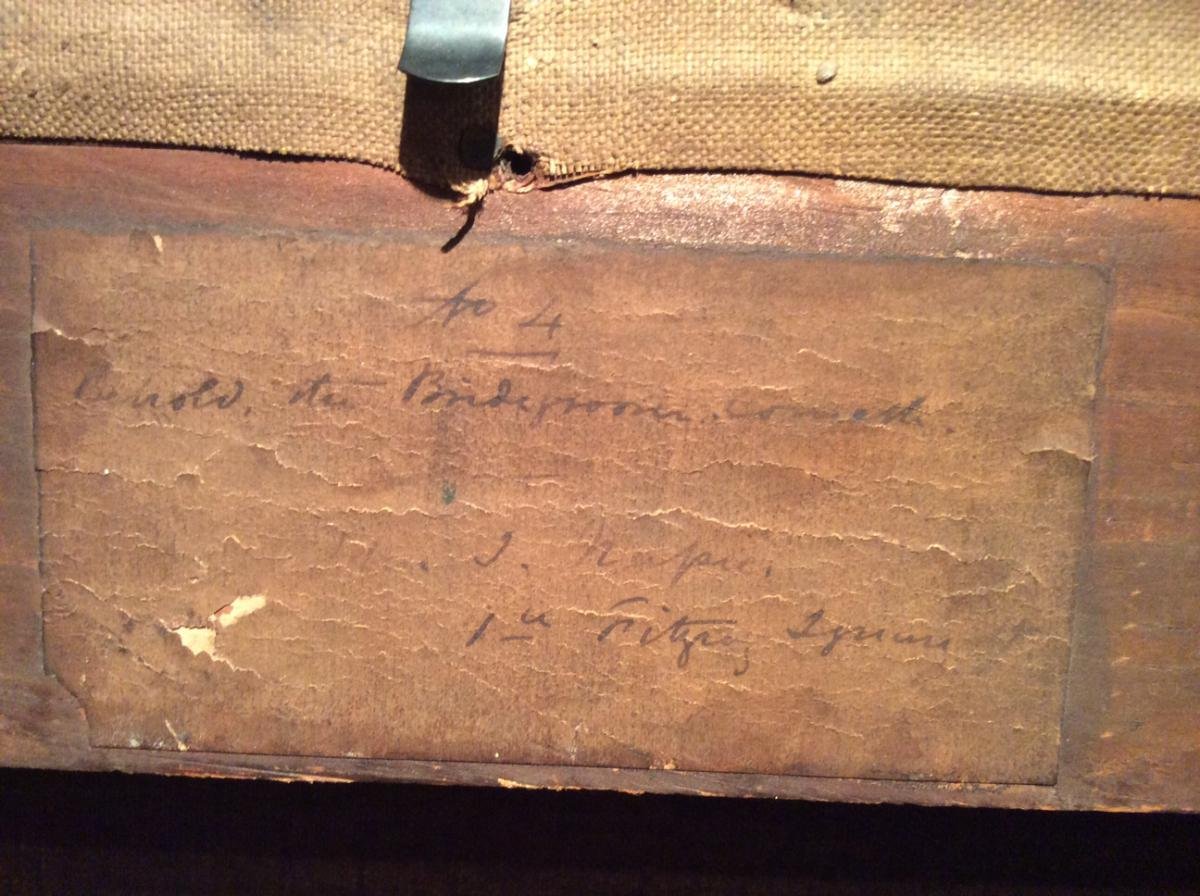 No 4
Behold, the Bridegroom cometh.
J. Napier.
1a Fitzroy Square